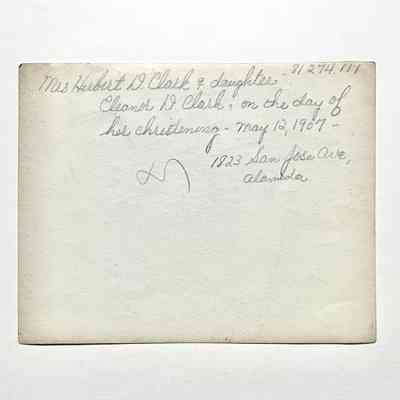 Mrs Herbert D. Clark & daughter - 81274.111
Eleanor D. Clark, on the day of
her christening - May 12, 1907 -
1823 San Jose Ave,
Alameda